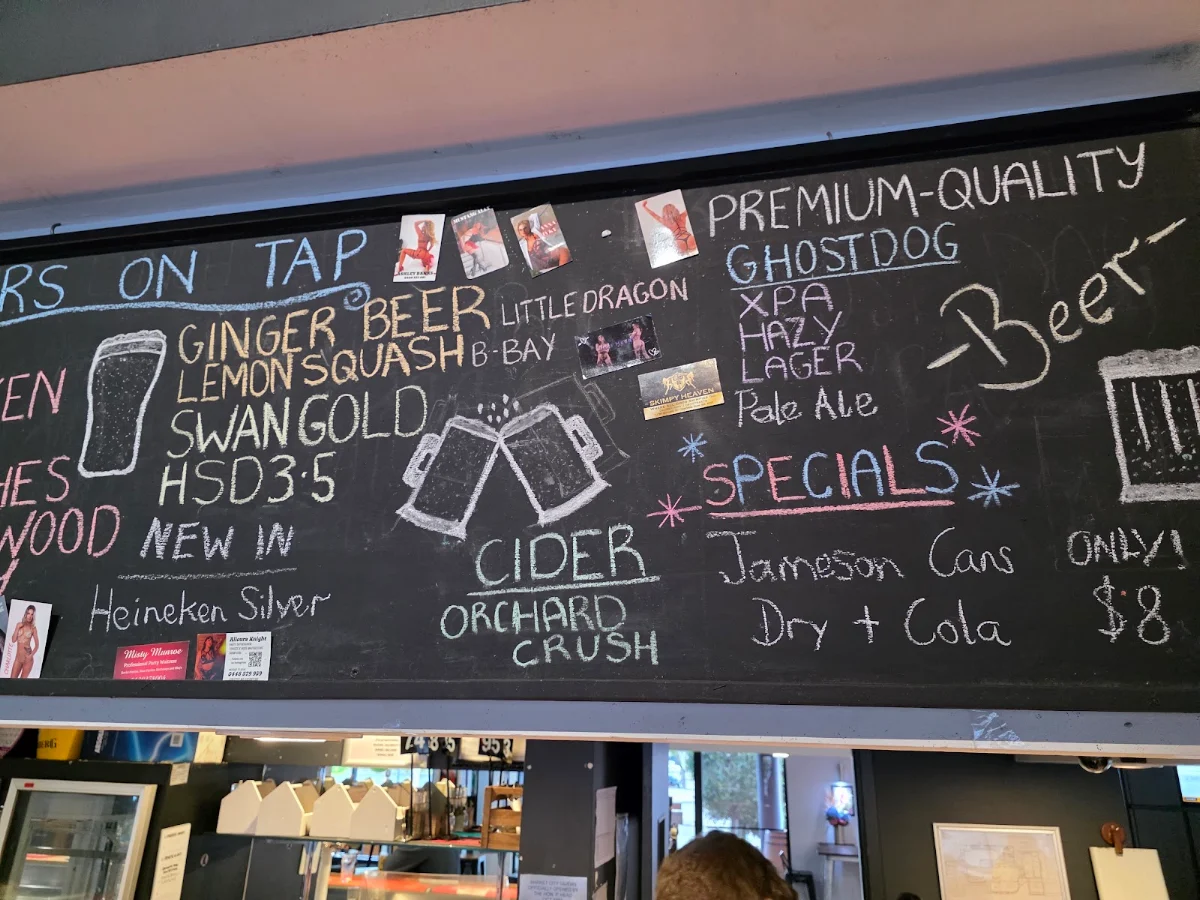 RS ON TAP
GINGER BEER
LEMON SQUASH
SWAN GOLD
HSD3.5
EN
HES
WOOD
NEW IN
Heineken Silver
LITTLE DRAGON
B-BAY
CIDER
ORCHARD
CRUSH
PREMIUM-QUALITY
Beer
GHOSTDOG
XPA
HAZY
LAGER
Pale Ale
SPECIALS
Jameson Cans
Dry + Cola
ONLY!
$8
SKIMPY HEAVEN
Misty Munroe